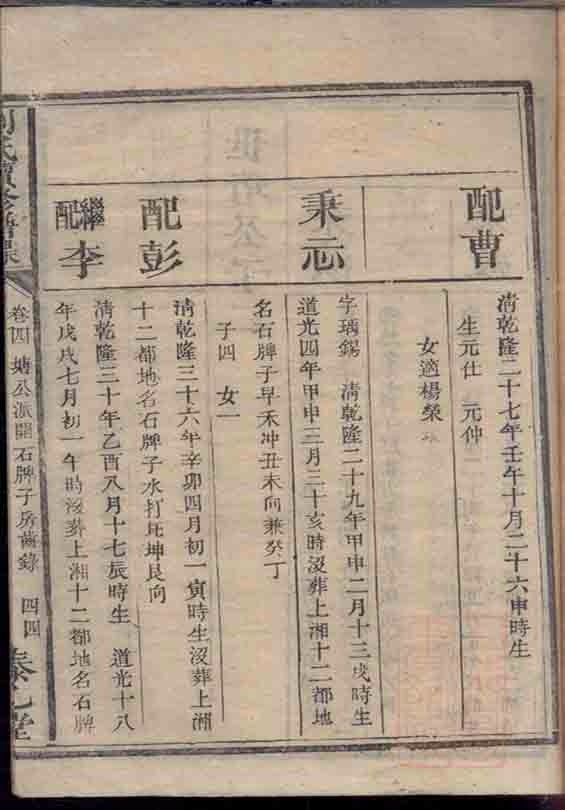 配曹
清乾隆二十七年壬午十月二十六申時生
生元仕 元仲
女適楊榮
秉忈
字瑀錫 清乾隆二十九年甲申二月十三戌時生
道光四年甲申三月三十亥時沒葬上湘十二都地
名石牌子早禾冲丑未向兼癸丁
子四 女一
配彭
清乾隆三十六年辛卯四月初一寅時生沒葬上湘
十二都地名石牌子水打坵坤艮向
繼配李
清乾隆三十年乙酉八月十七辰時生 道光十八
年戊戌七月初一午時沒葬上湘十二都地名石牌
氏續修譜
卷四 塘公派開石牌子房齒錄 四四
堂